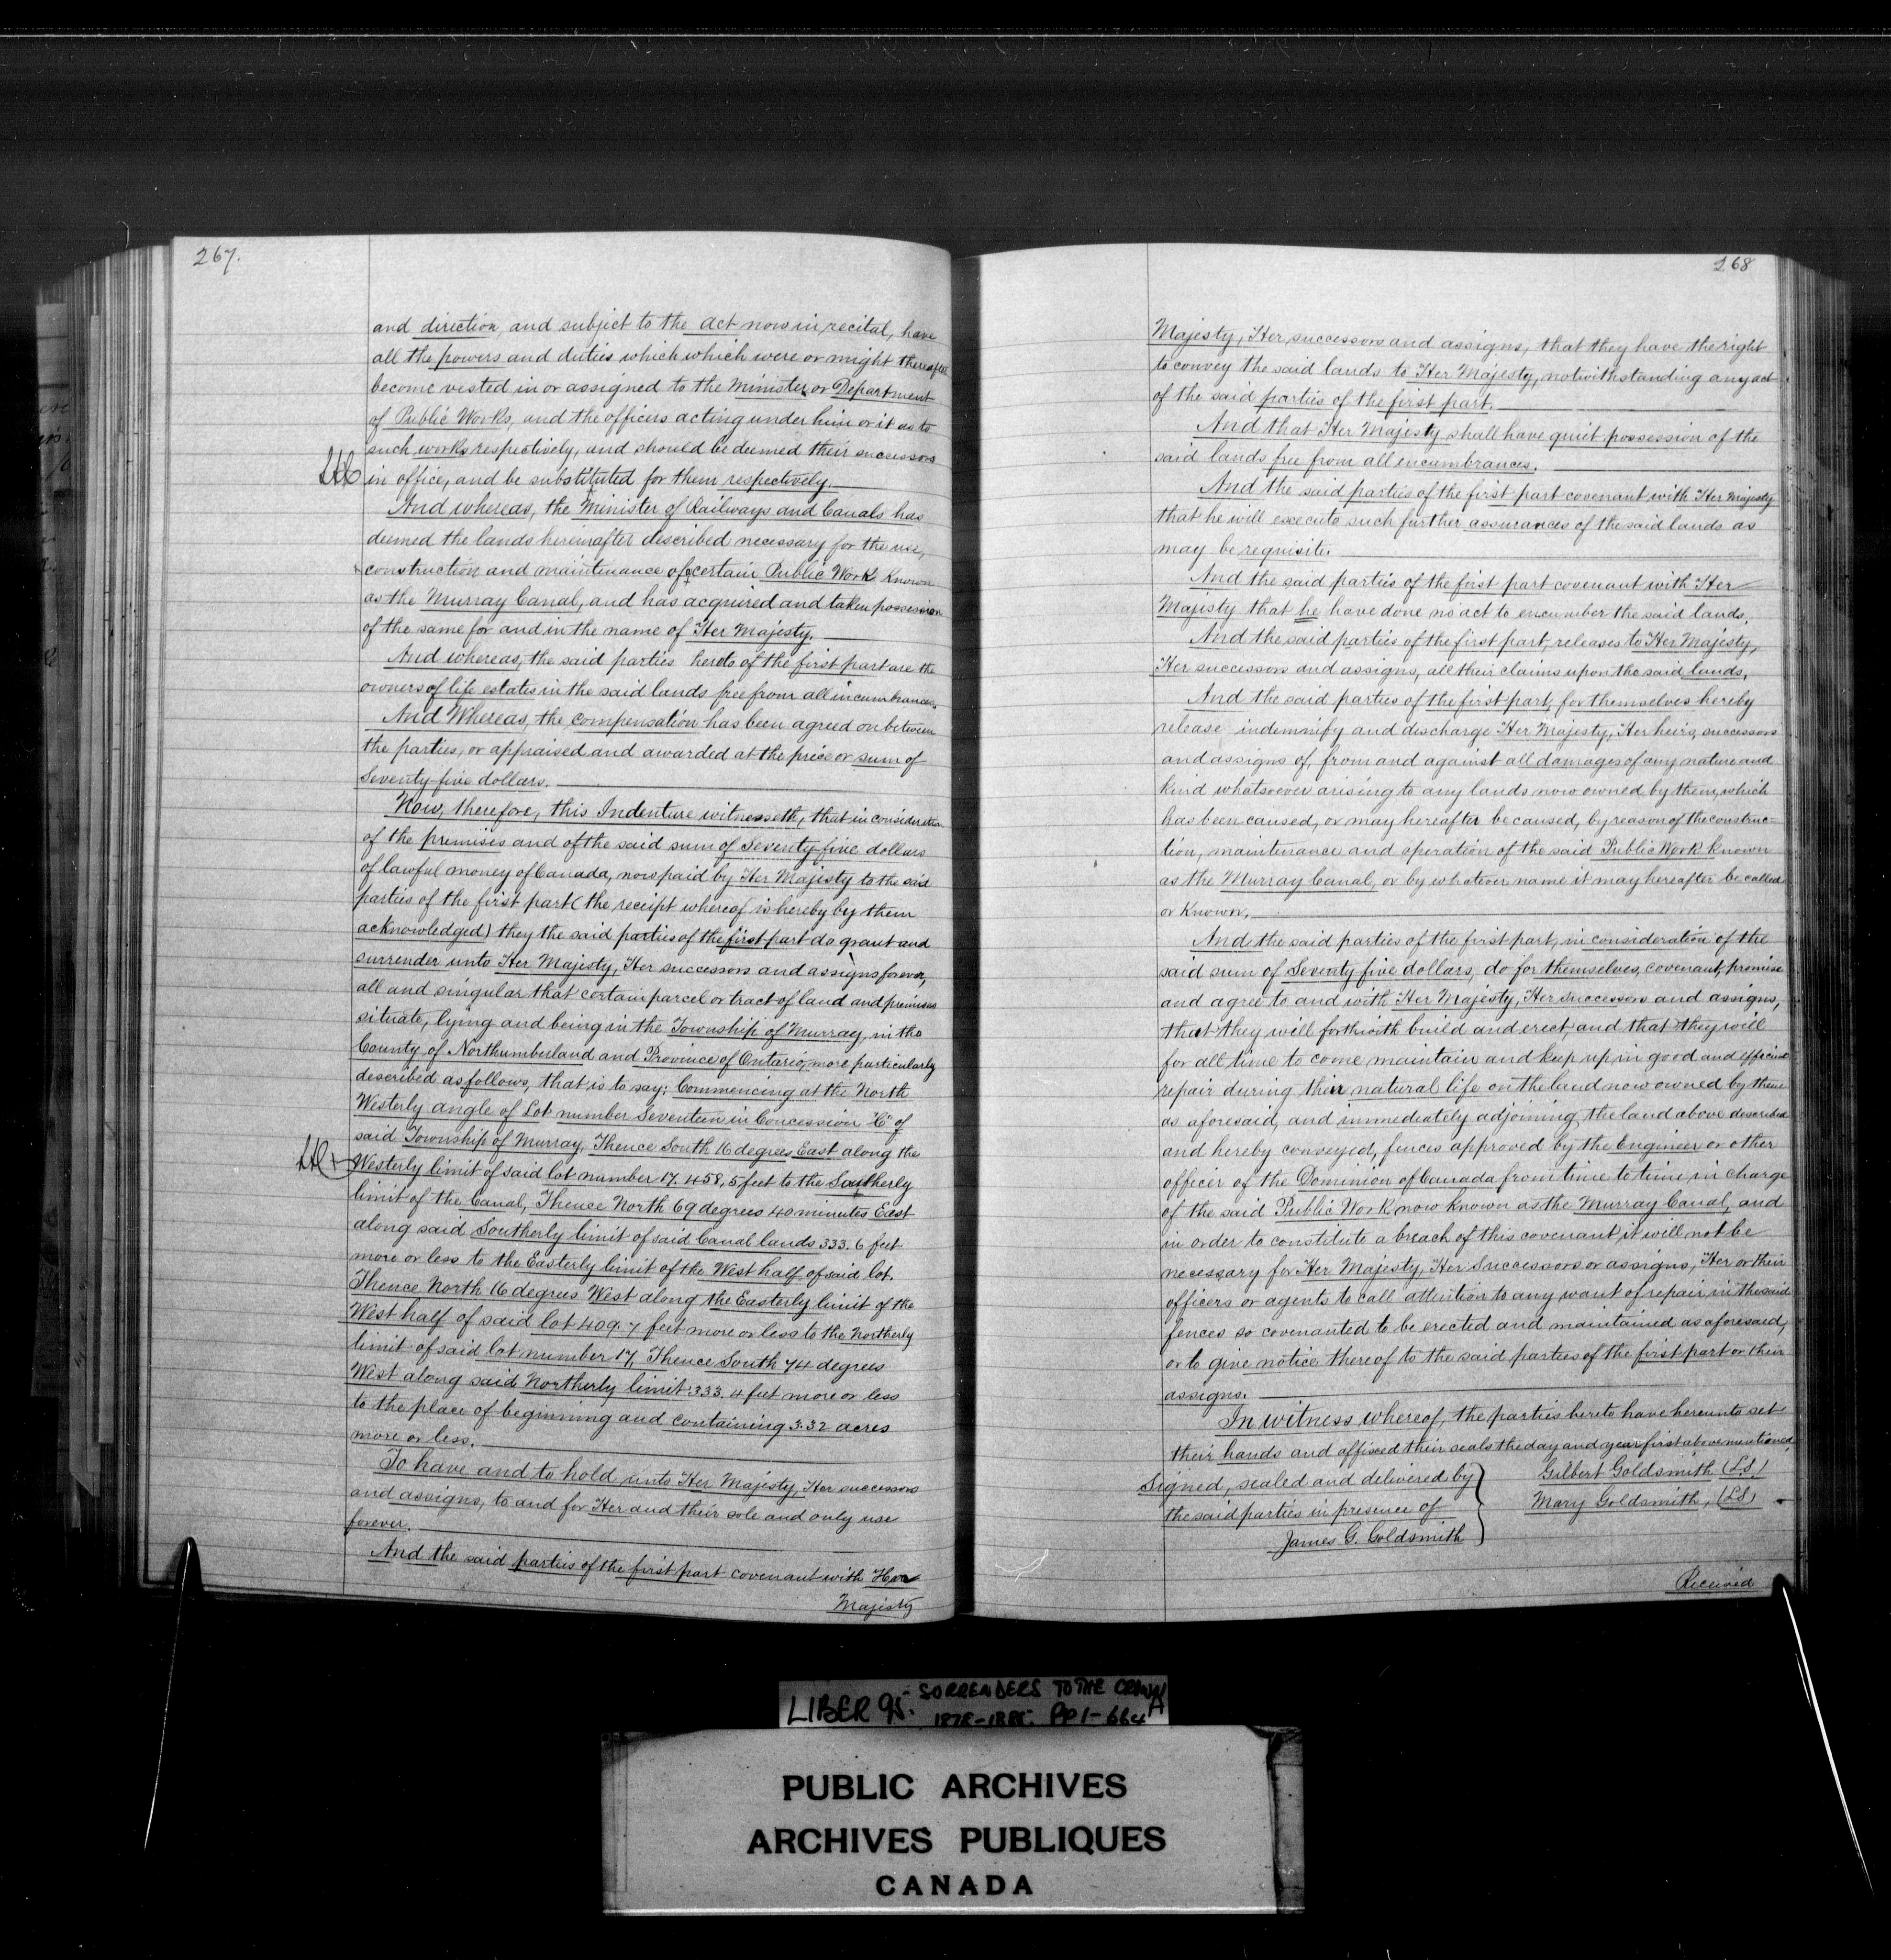 267.
and direction, and subject to the act now in recital, have
all the powers and duties which which were or might thereafter
become vested in or assigned to the Minister or Department
of Public Works, and the officers acting under him or it as to
such works respectively, and should be deemed their successors
in office, and be substituted for them respectively.
And whereas, the Minister of Railways and Canals has
deemed the lands hereinafter described necessary for the use,
construction and maintenance of certain Public Work known
as the Murray Canal, and has acquired and taken possession
of the same for and in the name of Her Majesty.
And whereas, the said parties hereto of the first part are the
owners of life estates in the said lands free from all incumbrances.
And Whereas, the compensation has been agreed on between
the parties, or appraised and awarded at the price or sum of
Seventy five dollars.
Now, therefore, this Indenture witnesseth, that in consideration
of the premises and of the said sum of Seventy five dollars
of lawful money of Canada, now paid by Her Majesty to the said
parties of the first part (the receipt whereof is hereby by them
acknowledged) they the said parties of the first part do grant and
surrender unto Her Majesty, Her successors and assigns forever,
all and singular that certain parcel or tract of land and premises
situate, lying and being in the Township of Murray, in the
County of Northumberland and Province of Ontario, more particularly
described as follows, that is to say: Commencing at the North
Westerly angle of Lot number Seventeen in Concession "C" of
said Township of Murray, Thence South 16 degrees East along the
Westerly limit of said lot number 17. 458.5 feet to the Southerly
limit of the Canal, Thence North 69 degrees 40 minutes East
along said Southerly limit of said Canal lands 333.6 feet
more or less to the Easterly limit of the West half of said lot.
Thence North 16 degrees West along the Easterly limit of the
West half of said lot 409.7 feet more or less to the Northerly
limit of said lot number 17, Thence South 74 degrees
West along said Northerly limit 333.4 feet more or less
to the place of beginning and containing 3.32 acres
more or less.
To have and to hold unto Her Majesty, Her successors
and assigns, to and for Her and their sole and only use
forever.
And the said parties of the first part covenant with Her
Majesty
268
Majesty, Her successors and assigns, that they have the right
to convey the said lands to Her Majesty, notwithstanding any act
of the said parties of the first part.
And that Her Majesty shall have quiet possession of the
said lands free from all encumbrances.
And the said parties of the first part covenant with Her Majesty
that he will execute such further assurances of the said lands as
may be requisite.
And the said parties of the first part covenant with Her
Majesty that he have done no act to encumber the said lands.
And the said parties of the first part, releases to Her Majesty,
Her successors and assigns, all their claims upon the said lands.
And the said parties of the first part, for themselves hereby
release indemnify and discharge Her Majesty, Her heirs, successors
and assigns of, from and against all damages of any nature and
kind whatsoever arising to any lands now owned by them, which
has been caused, or may hereafter be caused, by reason of the construc-
tion, maintenance and operation of the said Public Work known
as the Murray Canal, or by whatever name it may hereafter be called
or known.
And the said parties of the first part, in consideration of the
said sum of Seventy five dollars, do for themselves, covenant, promise
and agree to and with Her Majesty, Her successors and assigns,
that they will forthwith build and erect, and that they will
for all time to come maintain and keep up in good and efficient
repair during their natural life on the land now owned by them
as aforesaid, and immediately adjoining the land above described
and hereby conveyed, fences approved by the Engineer or other
officer of the Dominion of Canada from time to time in charge
of the said Public Work now known as the Murray Canal, and
in order to constitute a breach of this covenant it will not be
necessary for Her Majesty, Her Successors or assigns, Her or their
officers or agents to call attention to any want of repair in the said
fences so covenanted to be erected and maintained as aforesaid,
or to give notice thereof to the said parties of the first part or their
assigns.
In witness whereof, the parties hereto have hereunto set
their hands and affixed their seals the day and year first above mentioned
Signed, sealed and delivered by
the said parties in presence of
James G. Goldsmith
Gilbert Goldsmith (L.S.)
Mary Goldsmith, (LS)
Received
LIBER 95: SURRENDERS TO THE CROWN A
PP 1-664
PUBLIC ARCHIVES
ARCHIVES PUBLIQUES
CANADA